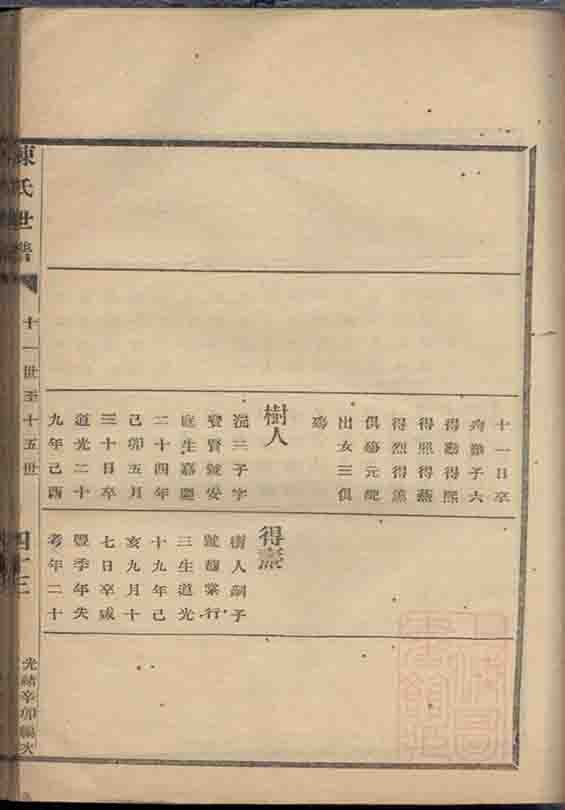 十一日卒
子六
得勤得熙
得照得燕
得烈得
俱元
出女三俱
樹人
三子字
賢號安
庭生嘉慶
二十四年
己卯五月
三十日卒
道光二十
九年己酉
得
樹人嗣子
號馥棠行
三生道光
十九年己
亥九月十
七日卒咸
豐季年失
考年二十
陳氏世譜
十一世至十五世
四十三
光緒辛卯編次